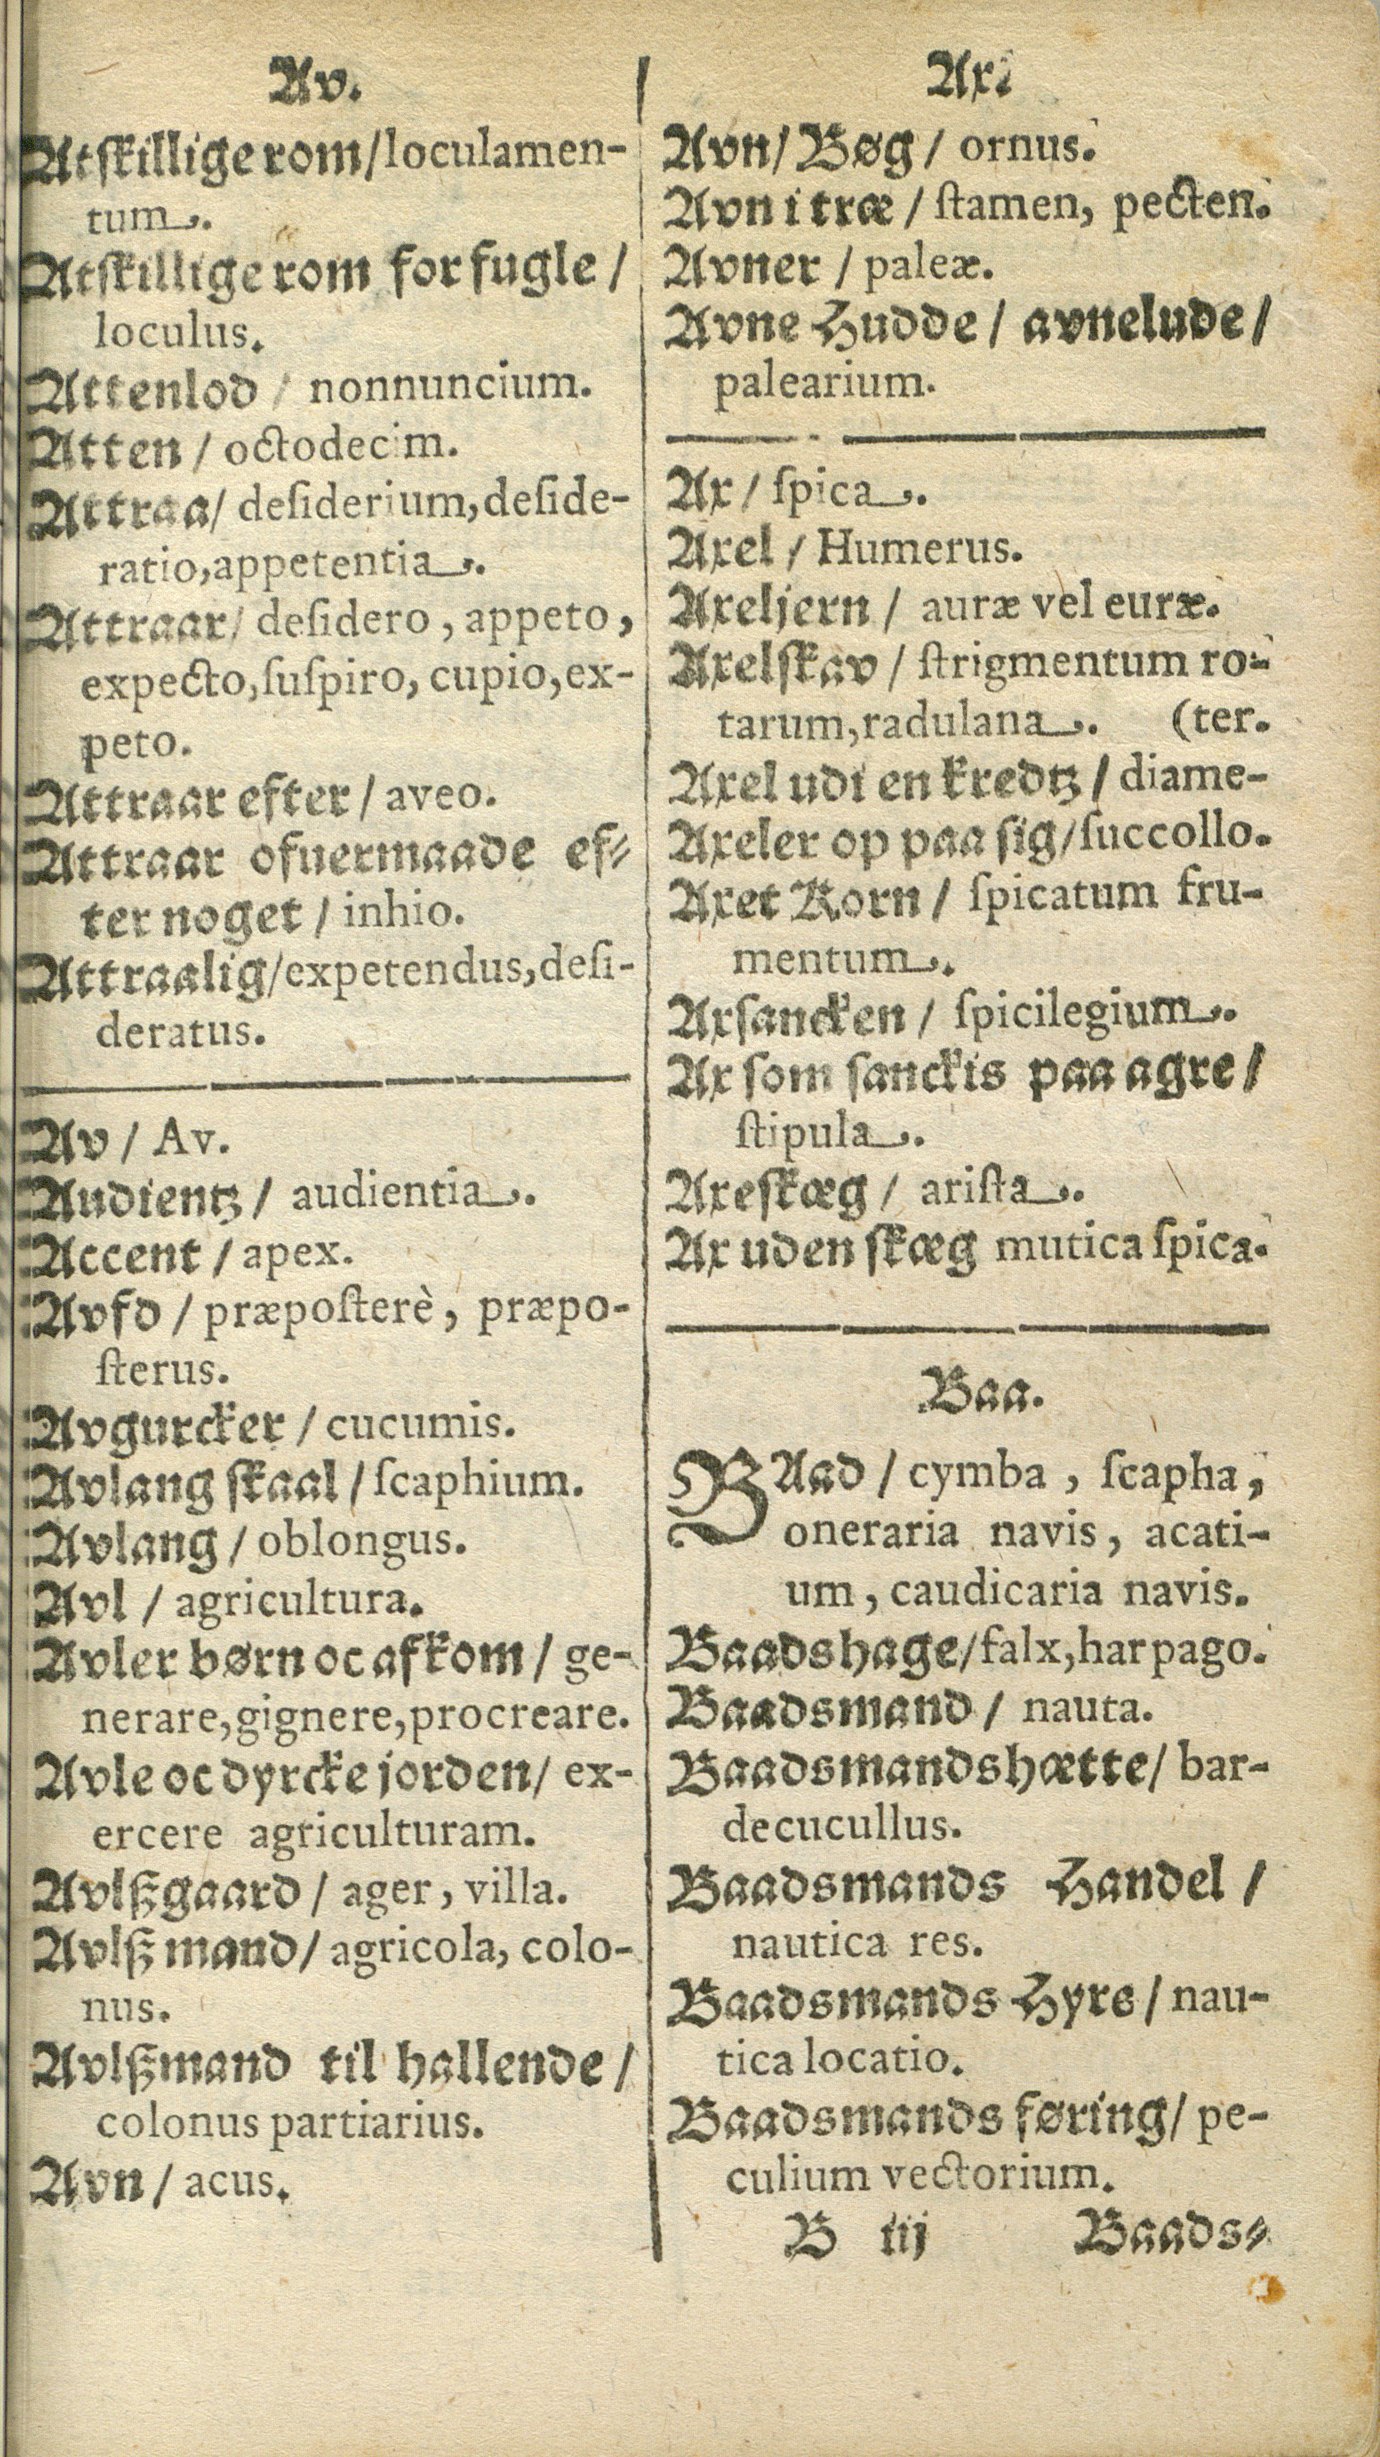 Av.
Atſkillige rom/loculamen-
tum.
Atſkillige rom for fugle/
loculus.
Attenlod / nonnuncium.
Atten / octodecim.
Attraa/ deſiderium, deſide-
ratio, appetentia.
Attraar/ deſidero, appeto,
expecto, ſuſpiro, cupio, ex-
peto.
Attraar efter / aveo.
Attraar ofuermaade ef-
ter noget / inhio.
Attraalig/expetendus, deſi-
deratus.
Av / Av.
Audientz / audientia.
Accent / apex.
Avfd / præpoſterè, præpo-
ſterus.
Avgurcker / cucumis.
Avlang ſkaal / ſcaphium.
Avlang / oblongus.
Avl / agricultura.
Avler børn oc afkom / ge-
nerare, gignere, procreare.
Avle oc dyrcke jorden/ ex-
ercere agriculturam.
Avlßgaard / ager, villa.
Avlß mand/ agricola, colo-
nus.
Avlßmand til hallende/
colonus partiarius.
Avn / acus.
Ax.
Avn/ Bøg / ornus.
Avn i træ / ſtamen, pecten.
Avner / paleæ.
Avne Hudde / avnelude/
palearium.
Ax / ſpica.
Axel / Humerus.
Axeljern / auræ vel euræ.
Axelſkav / ſtrigmentum ro-
tarum, radulana. (ter.
Axel udi en kredtz / diame-
Axeler op paa ſig/ſuccollo.
Axet Korn / ſpicatum fru-
mentum.
Axſancken / ſpicilegium.
Ax ſom ſanckis paa agre/
ſtipula.
Axeſkæg / ariſta.
Ax uden ſkæg mutica ſpica.
Baa.
BAad / cymba, ſcapha,
oneraria navis, acati-
um, caudicaria navis.
Baadshage/falx, harpago.
Baadsmand / nauta.
Baadsmandshætte/ bar-
decucullus.
Baadsmands Handel /
nautica res.
Baadsmands Hyre / nau-
tica locatio.
Baadsmands føring/ pe-
culium vectorium.
B iij Baads-